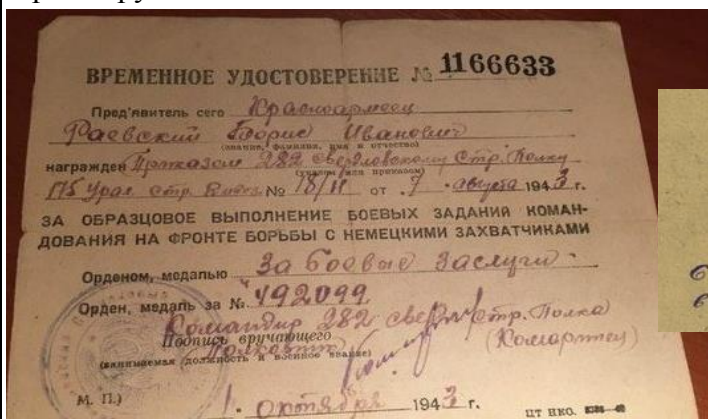 ВРЕМЕННОЕ УДОСТОВЕРЕНИЕ № 1166633
Пред'явитель сего Красноармеец
Раевский Борис Иванович
(звание, фамилия, имя и отчество)
награжден Приказом 282 Свердловскому Стр. Полку
(указом или приказом)
175 Урал. Стр. Дивиз № 18/н от 7 августа 1943 г.
ЗА ОБРАЗЦОВОЕ ВЫПОЛНЕНИЕ БОЕВЫХ ЗАДАНИЙ КОМАН-
ДОВАНИЯ НА ФРОНТЕ БОРЬБЫ С НЕМЕЦКИМИ ЗАХВАТЧИКАМИ
Орденом, медалью За боевые Заслуги
Орден, медаль за № 492099
Командир 282 Стр. Полка
Подпись вручающего
(занимаемая должность и военное звание)
М. П.)
1 октября 1943 г.
ЦТ НКО.